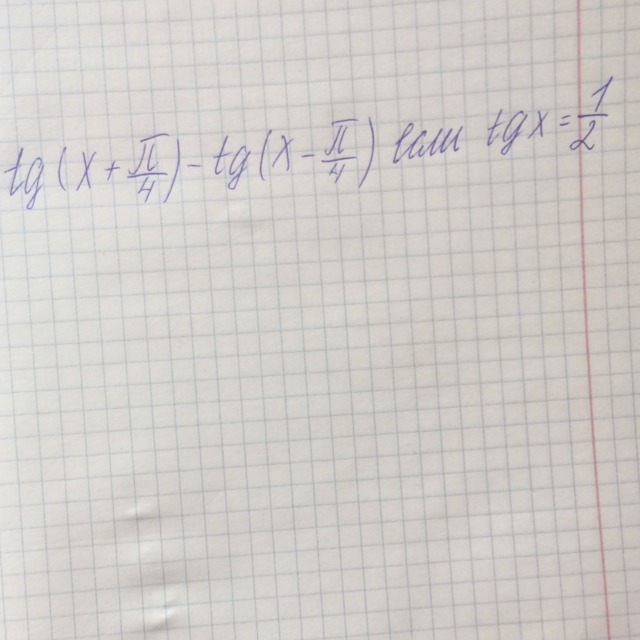 tg(x + π/4) - tg(x - π/4) если tgx = 1/2